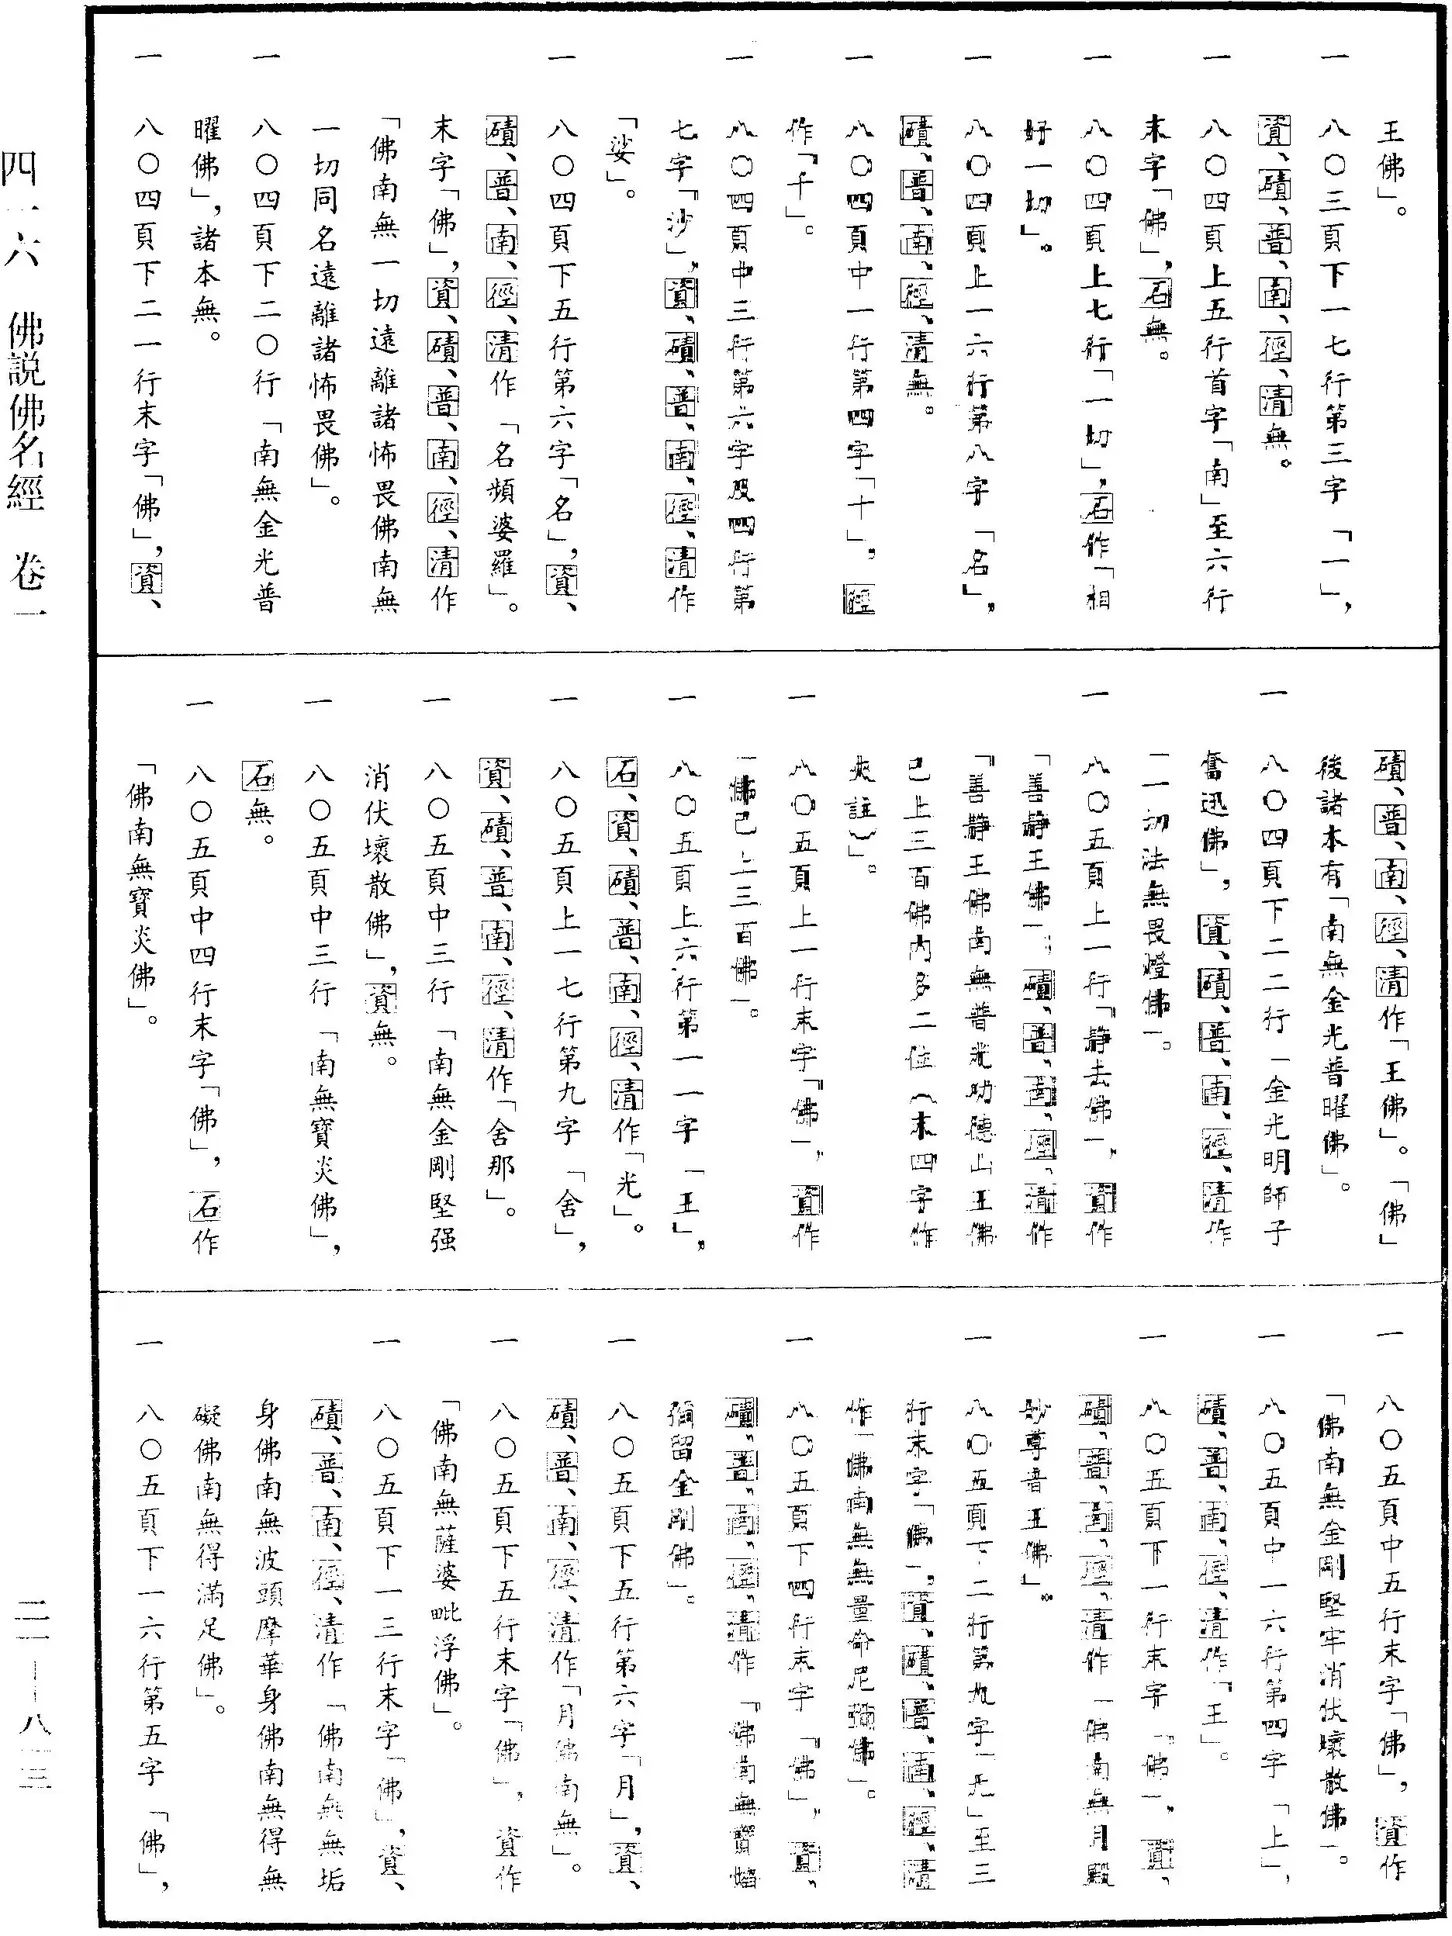 王佛」。
一　八〇三頁下一七行第三字「一」，
資、磧、普、南、徑、清無。
一　八〇四頁上五行首字「南」至六行
末字「佛」，石無。
一　八〇四頁上七行「一切」，石作「相
好一切」。
一　八〇四頁上一六行第八字「名」，
磧、普、南、徑、清無。
一　八〇四頁中一行第四字「十」，徑
作「千」。
一　八〇四頁中三行第六字及四行第
七字「沙」，資、磧、普、南、徑、清作
「娑」。
一　八〇四頁下五行第六字「名」，資、
磧、普、南、徑、清作「名頻婆羅」。
末字「佛」，資、磧、普、南、徑、清作
「佛南無一切遠離諸怖畏佛南無
一切同名遠離諸怖畏佛」。
一　八〇四頁下二〇行「南無金光普
曜佛」，諸本無。
一　八〇四頁下二一行末字「佛」，資、
磧、普、南、徑、清作「王佛」。「佛」
後諸本有「南無金光普曜佛」。
一　八〇四頁下二二行「金光明師子
奮迅佛」，資、磧、普、南、徑、清作
「一切法無畏燈佛」。
一　八〇五頁上一行「靜去佛」，資作
「善靜王佛」；磧、普、南、徑、清作
「善靜王佛南無普光功德山王佛
已上三百佛內多二位（末四字作
夾註）」。
一　八〇五頁上一行末字「佛」，資作
「佛已上三百佛」。
一　八〇五頁上六行第一一字「王」，
石、資、磧、普、南、徑、清作「光」。
一　八〇五頁上一七行第九字「舍」，
資、磧、普、南、徑、清作「舍那」。
一　八〇五頁中三行「南無金剛堅强
消伏壞散佛」，資無。
一　八〇五頁中三行「南無寶炎佛」，
石無。
一　八〇五頁中四行末字「佛」，石作
「佛南無寶炎佛」。
一　八〇五頁中五行末字「佛」，資作
「佛南無金剛堅牢消伏壞散佛」。
一　八〇五頁中一六行第四字「上」，
磧、普、南、徑、清作「王」。
一　八〇五頁下一行末字「佛」，資、
磧、普、南、徑、清作「佛南無月殿
妙尊音王佛」。
一　八〇五頁下二行第九字「无」至三
行末字「佛」，資、磧、普、南、徑、清
作「佛南無無量命尼彌佛」。
一　八〇五頁下四行末字「佛」，資、
磧、普、南、徑、清作「佛南無寶焰
彌留金剛佛」。
一　八〇五頁下五行第六字「月」，資、
磧、普、南、徑、清作「月佛南無」。
一　八〇五頁下五行末字「佛」，資作
「佛南無薩婆毗浮佛」。
一　八〇五頁下一三行末字「佛」，資、
磧、普、南、徑、清作「佛南無無垢
身佛南無波頭摩華身佛南無得無
礙佛南無得滿足佛」。
一　八〇五頁下一六行第五字「佛」，
四一六　佛説佛名經　卷一
二一—八三三